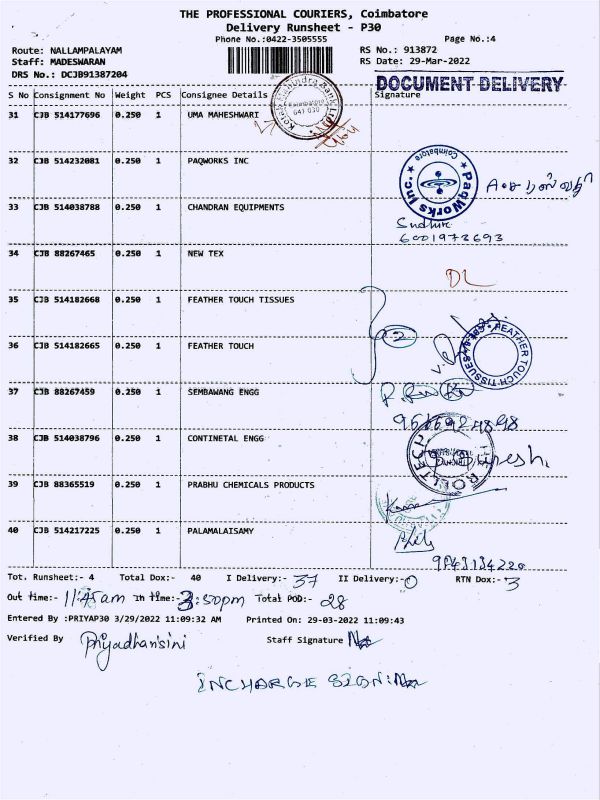 THE PROFESSIONAL COURIERS, Coimbatore
Delivery Runsheet - P30
Phone No.:0422-3505555
Page No.:4
Route: NALLAMPALAYAM
RS No.: 913872
Staff: MADESWARAN
RS Date: 29-Mar-2022
DRS No.: DCJB91387204
DOCUMENT DELIVERY
S No Consignment No Weight PCS Consignee Details Signature
31 CJB 514177696 0.250 1 UMA MAHESHWARI
32 CJB 514232081 0.250 1 PAQWORKS INC
Coimbatore
PaqWorks Inc.
33 CJB 514038788 0.250 1 CHANDRAN EQUIPMENTS
6001972693
34 CJB 88267465 0.250 1 NEW TEX
DL
35 CJB 514182668 0.250 1 FEATHER TOUCH TISSUES
36 CJB 514182665 0.250 1 FEATHER TOUCH
2
FEATHER TOUCH TISSUES
37 CJB 88267459 0.250 1 SEMBAWANG ENGG
38 CJB 514038796 0.250 1 CONTINETAL ENGG
ROLLTECH
39 CJB 88365519 0.250 1 PRABHU CHEMICALS PRODUCTS
40 CJB 514217225 0.250 1 PALAMALAISAMY
9843134220
Tot. Runsheet:- 4 Total Dox:- 40 I Delivery:- 37 II Delivery:- 0 RTN Dox:- 3
Out time:- 11:45am In time:- 3:50pm Total POD:- 28
Entered By :PRIYAP30 3/29/2022 11:09:32 AM Printed On: 29-03-2022 11:09:43
Verified By Priyadharsini Staff Signature
INCHARGE SIGN: